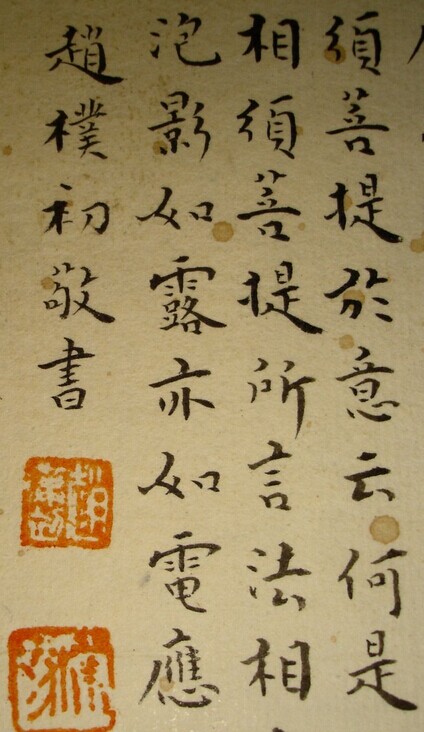 須菩提於意云何是
相須菩提所言法相
泡影如露亦如電應
趙樸初敬書